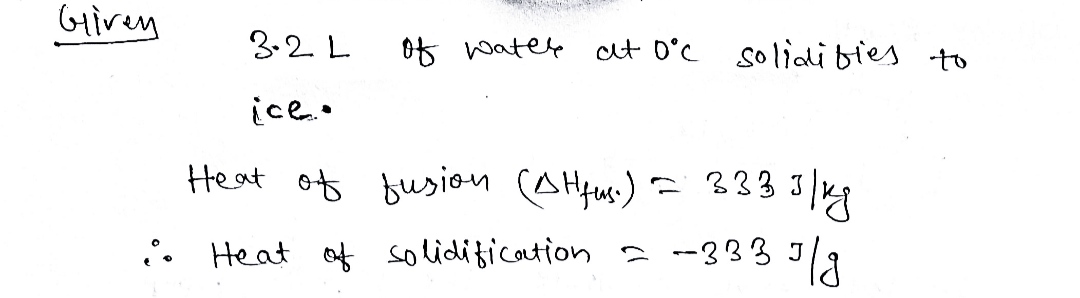 Given
3.2 L of water at 0°C solidifies to
ice.
Heat of fusion (ΔHfus.) = 333 J/kg
∴ Heat of solidification = -333 J/g